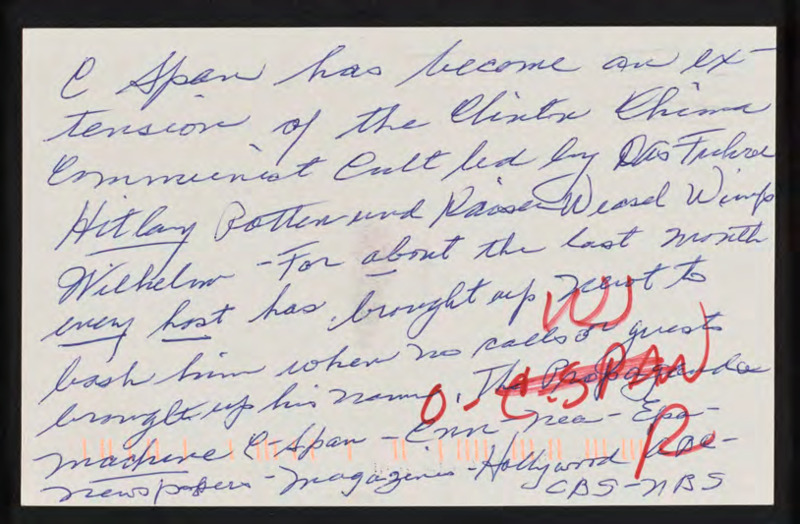 C Span has become an ex-
tension of the Clinton China
Communist Cult led by Das Fuhror
Hitlary Rotten und Kaiser Weasel Wimp
Wilhelm - For about the last month
every host has brought up Newt to
bash him when no calls or guests
brought up his name. The Propaganda
machine C Span - Cnn - nea - Epa -
newspapers - magazines - Hollywood
CBS - NBS
O - C-SPAN
R